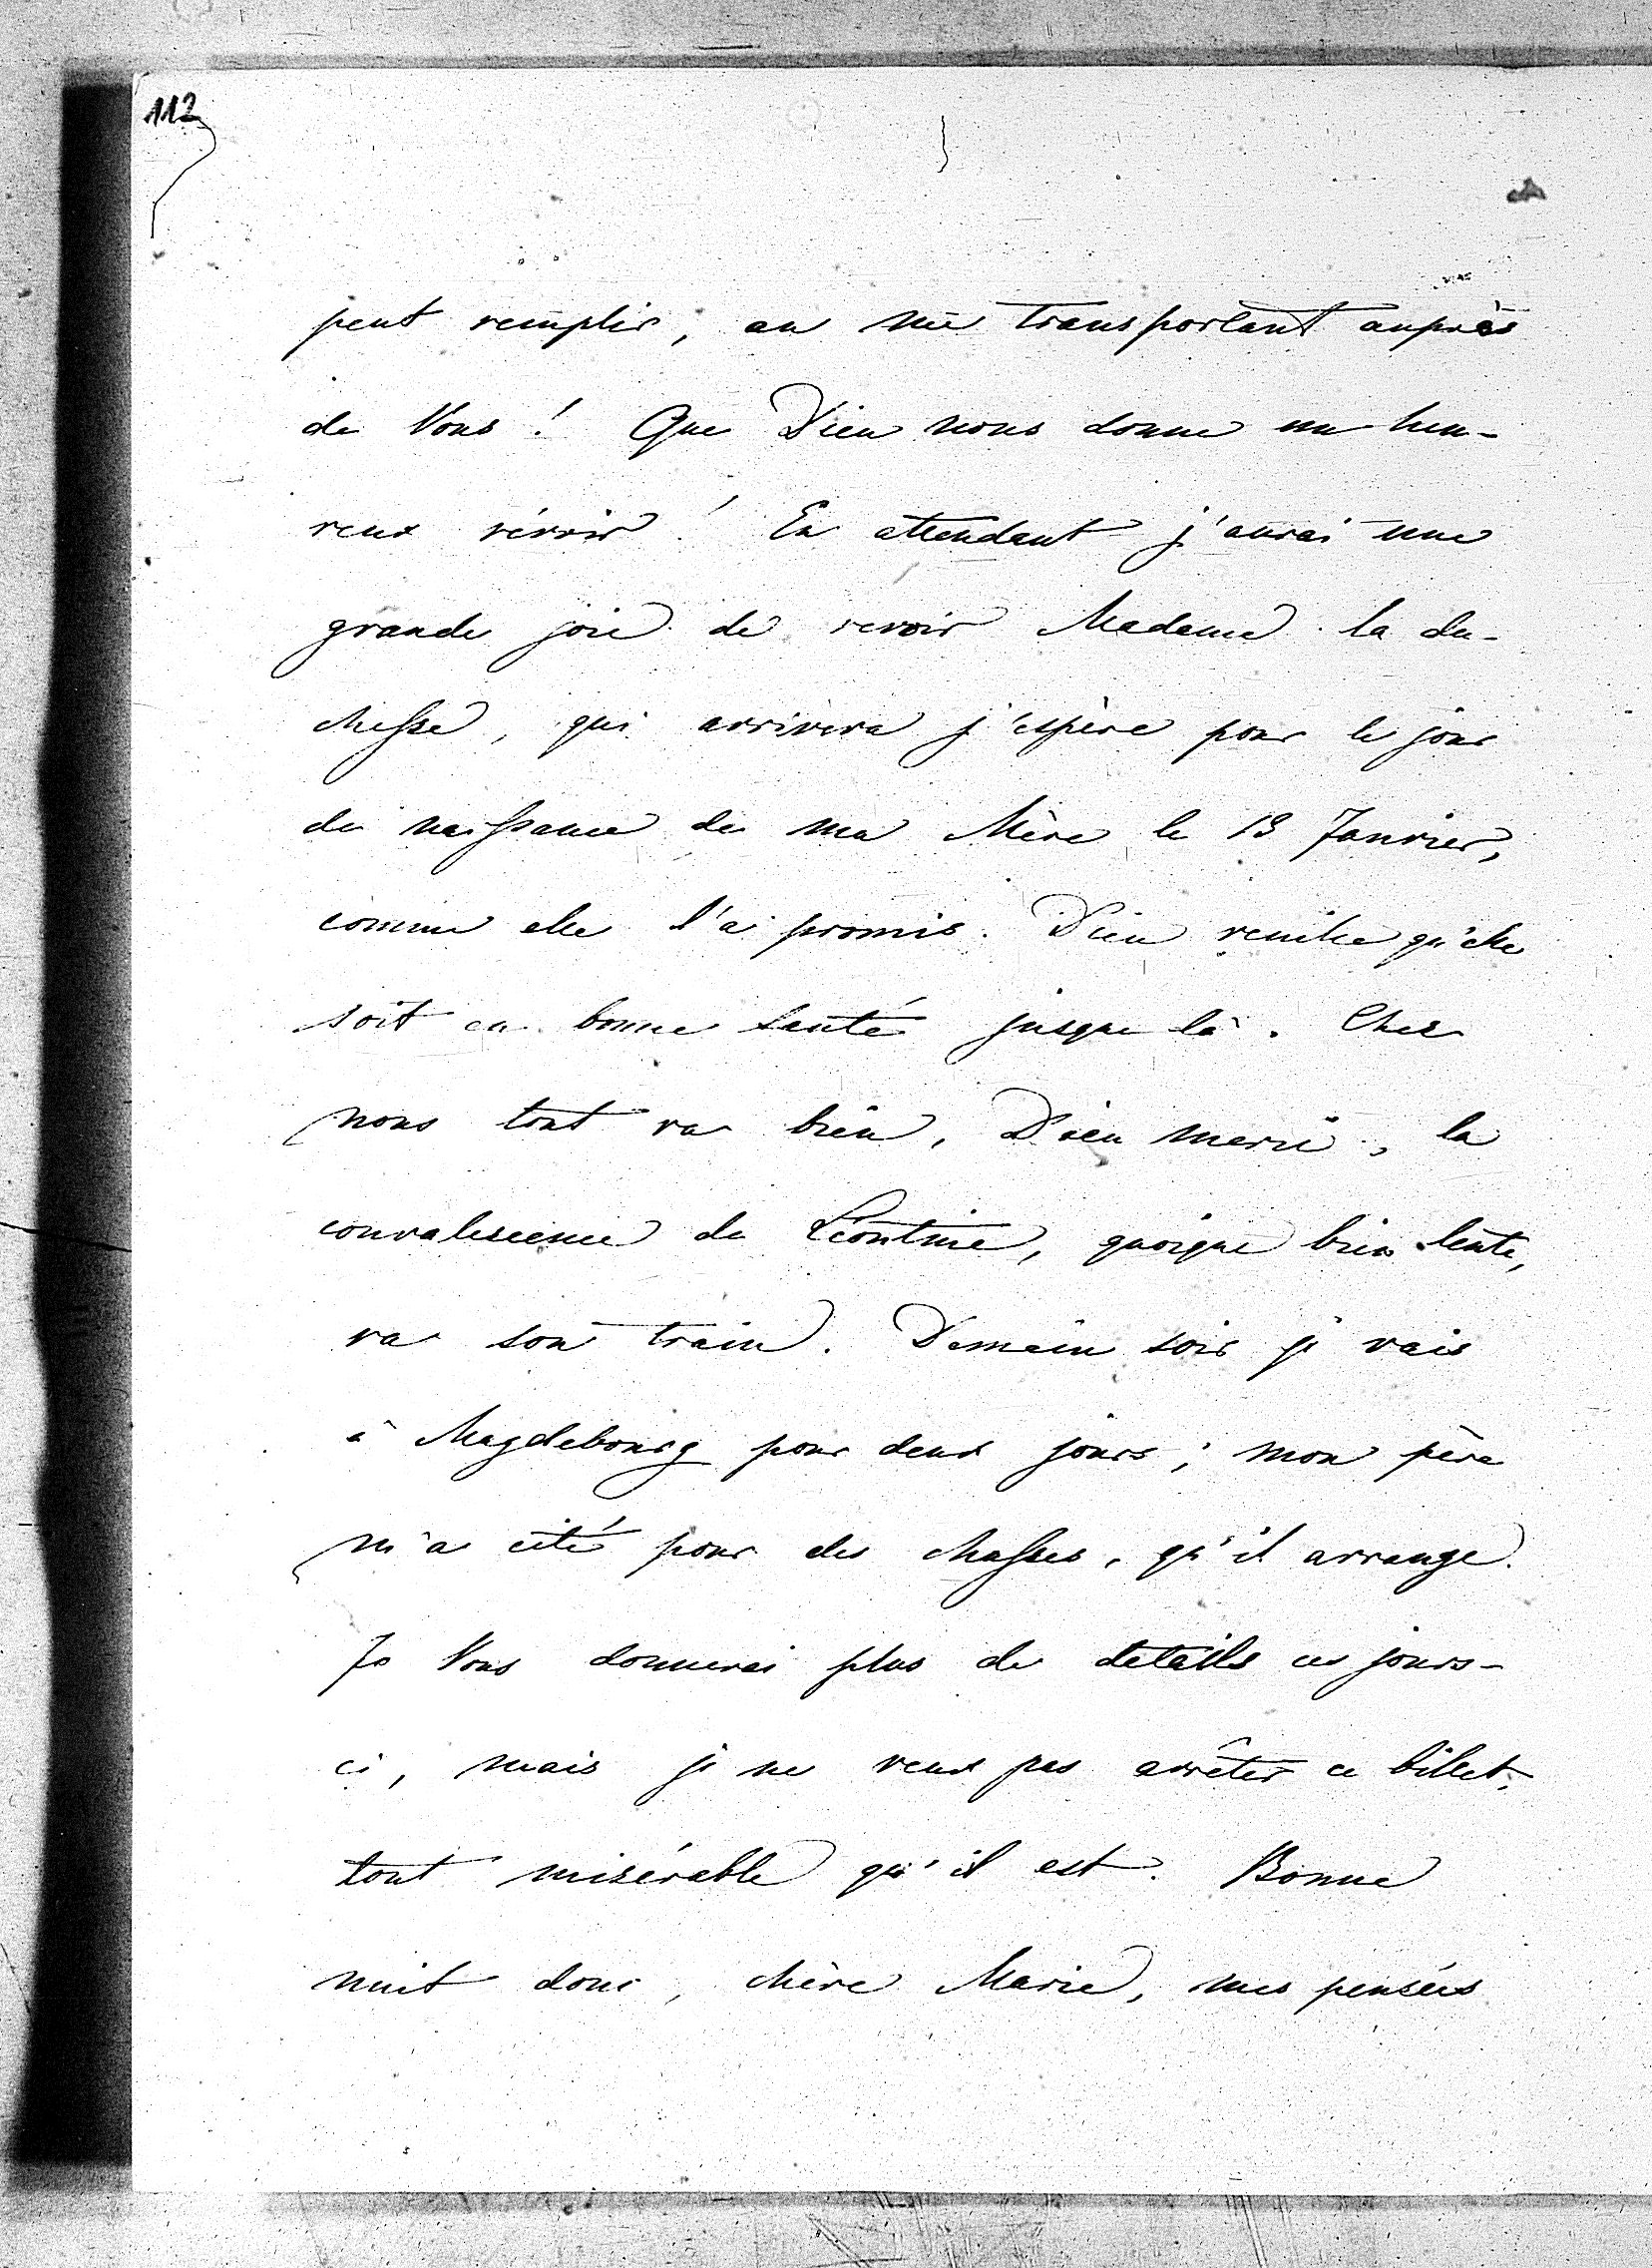 112
peut remplir, en me transportant auprès
de Vous! Que Dieu nous donne un heu-
reux révoir! En attendant j'aurai une
grande joie de revoir Madame la du-
chesse, qui arrivera j'espère pour le jour
de naissance de ma Mère le 13 Janvier,
comme elle l'a promis. Dieu veuille qu'elle
soit en bonne santé jusque là. Chez
nous tout va bien, Dieu merci, la
convalescence de Léontine, quoique bien lente,
va son train. Demain soir je vais
à Magdebourg pour deux jours; mon père
m'a cité pour des chasses, qu'il arrange.
Je Vous donnerai plus de details ces jours-
ci, mais je ne veux pas arrêter ce billet,
tout misérable qu'il est. Bonne
nuit donc, chère Marie, mes pensées